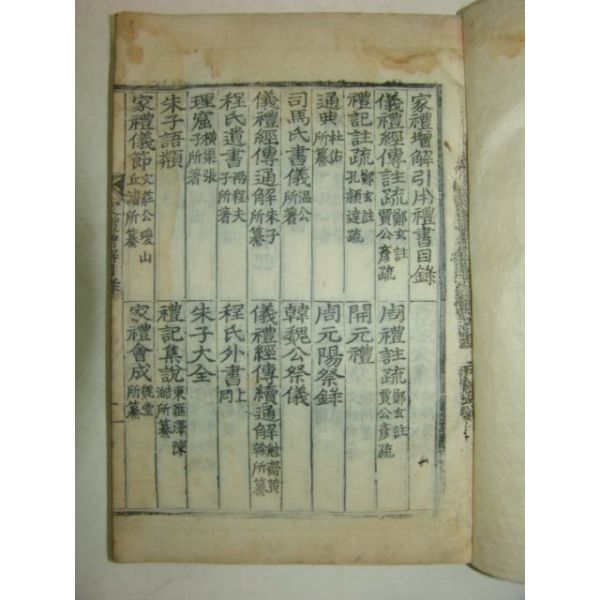 家禮增解引用禮書目錄
儀禮經傳註疏 鄭玄註賈公彥疏 周禮註疏 鄭玄註賈公彥疏
禮記註疏 鄭玄註孔穎達疏 開元禮
通典 杜佑所纂 周元陽祭錄
司馬氏書儀 溫公所著 韓魏公祭儀
儀禮經傳通解 朱子所纂 儀禮經傳續通解 勉齋黃榦所纂
程氏遺書 兩程夫子所著 程氏外書 上同
理窟 橫渠張子所著 朱子大全
朱子語類 禮記集說 東匯澤陳澔所纂
家禮儀節 文莊公瓊山丘濬所纂 家禮會成 魏堂所纂